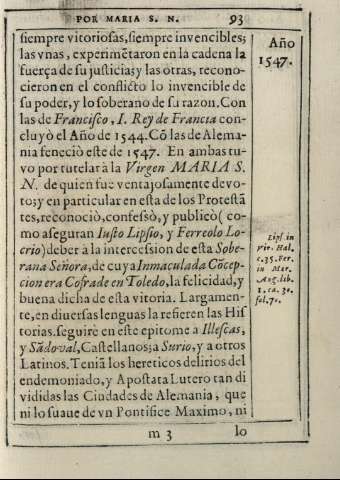 POR MARIA S. N. 93
siempre vitoriosas, siempre invencibles;
las vnas, experimẽtaron en la cadena la
fuerça de su justicia; y las otras, recono-
cieron en el conflicto lo invencible de
su poder, y lo soberano de su razon. Con
las de Francisco, I. Rey de Francia con-
cluyò el Año de 1544. Cõ las de Alema-
nia feneciò este de 1547. En ambas tu-
vo por tutelar à la Virgen MARIA S.
N. de quien fue ventajosamente devo-
to; y en particular en esta de los Protestã
tes, reconociò, confesò, y publicò ( co-
mo aseguran Iusto Lipsio, y Ferreolo Lo-
crio) deber à la intercession de esta Sobe-
rana Señora, de cuya Inmaculada Cõcep-
cion era Cofrade en Toledo, la felicidad, y
buena dicha de esta vitoria. Largamen-
te, en diversas lenguas la refieren las His
torias. seguirè en este epitome a Illescas,
y Sãdoval, Castellanos; a Surio, y a otros
Latinos. Teniã los hereticos delirios del
endemoniado, y Apostata Lutero tan di
vididas las Ciudades de Alemania, que
ni lo suaue de vn Pontifice Maximo, ni
m 3 lo
Año
1547.
Lips. in
Vir. Hal.
c. 35. Fer.
in Mar.
Aug. lib.
1. ca. 30.
fol. 70.